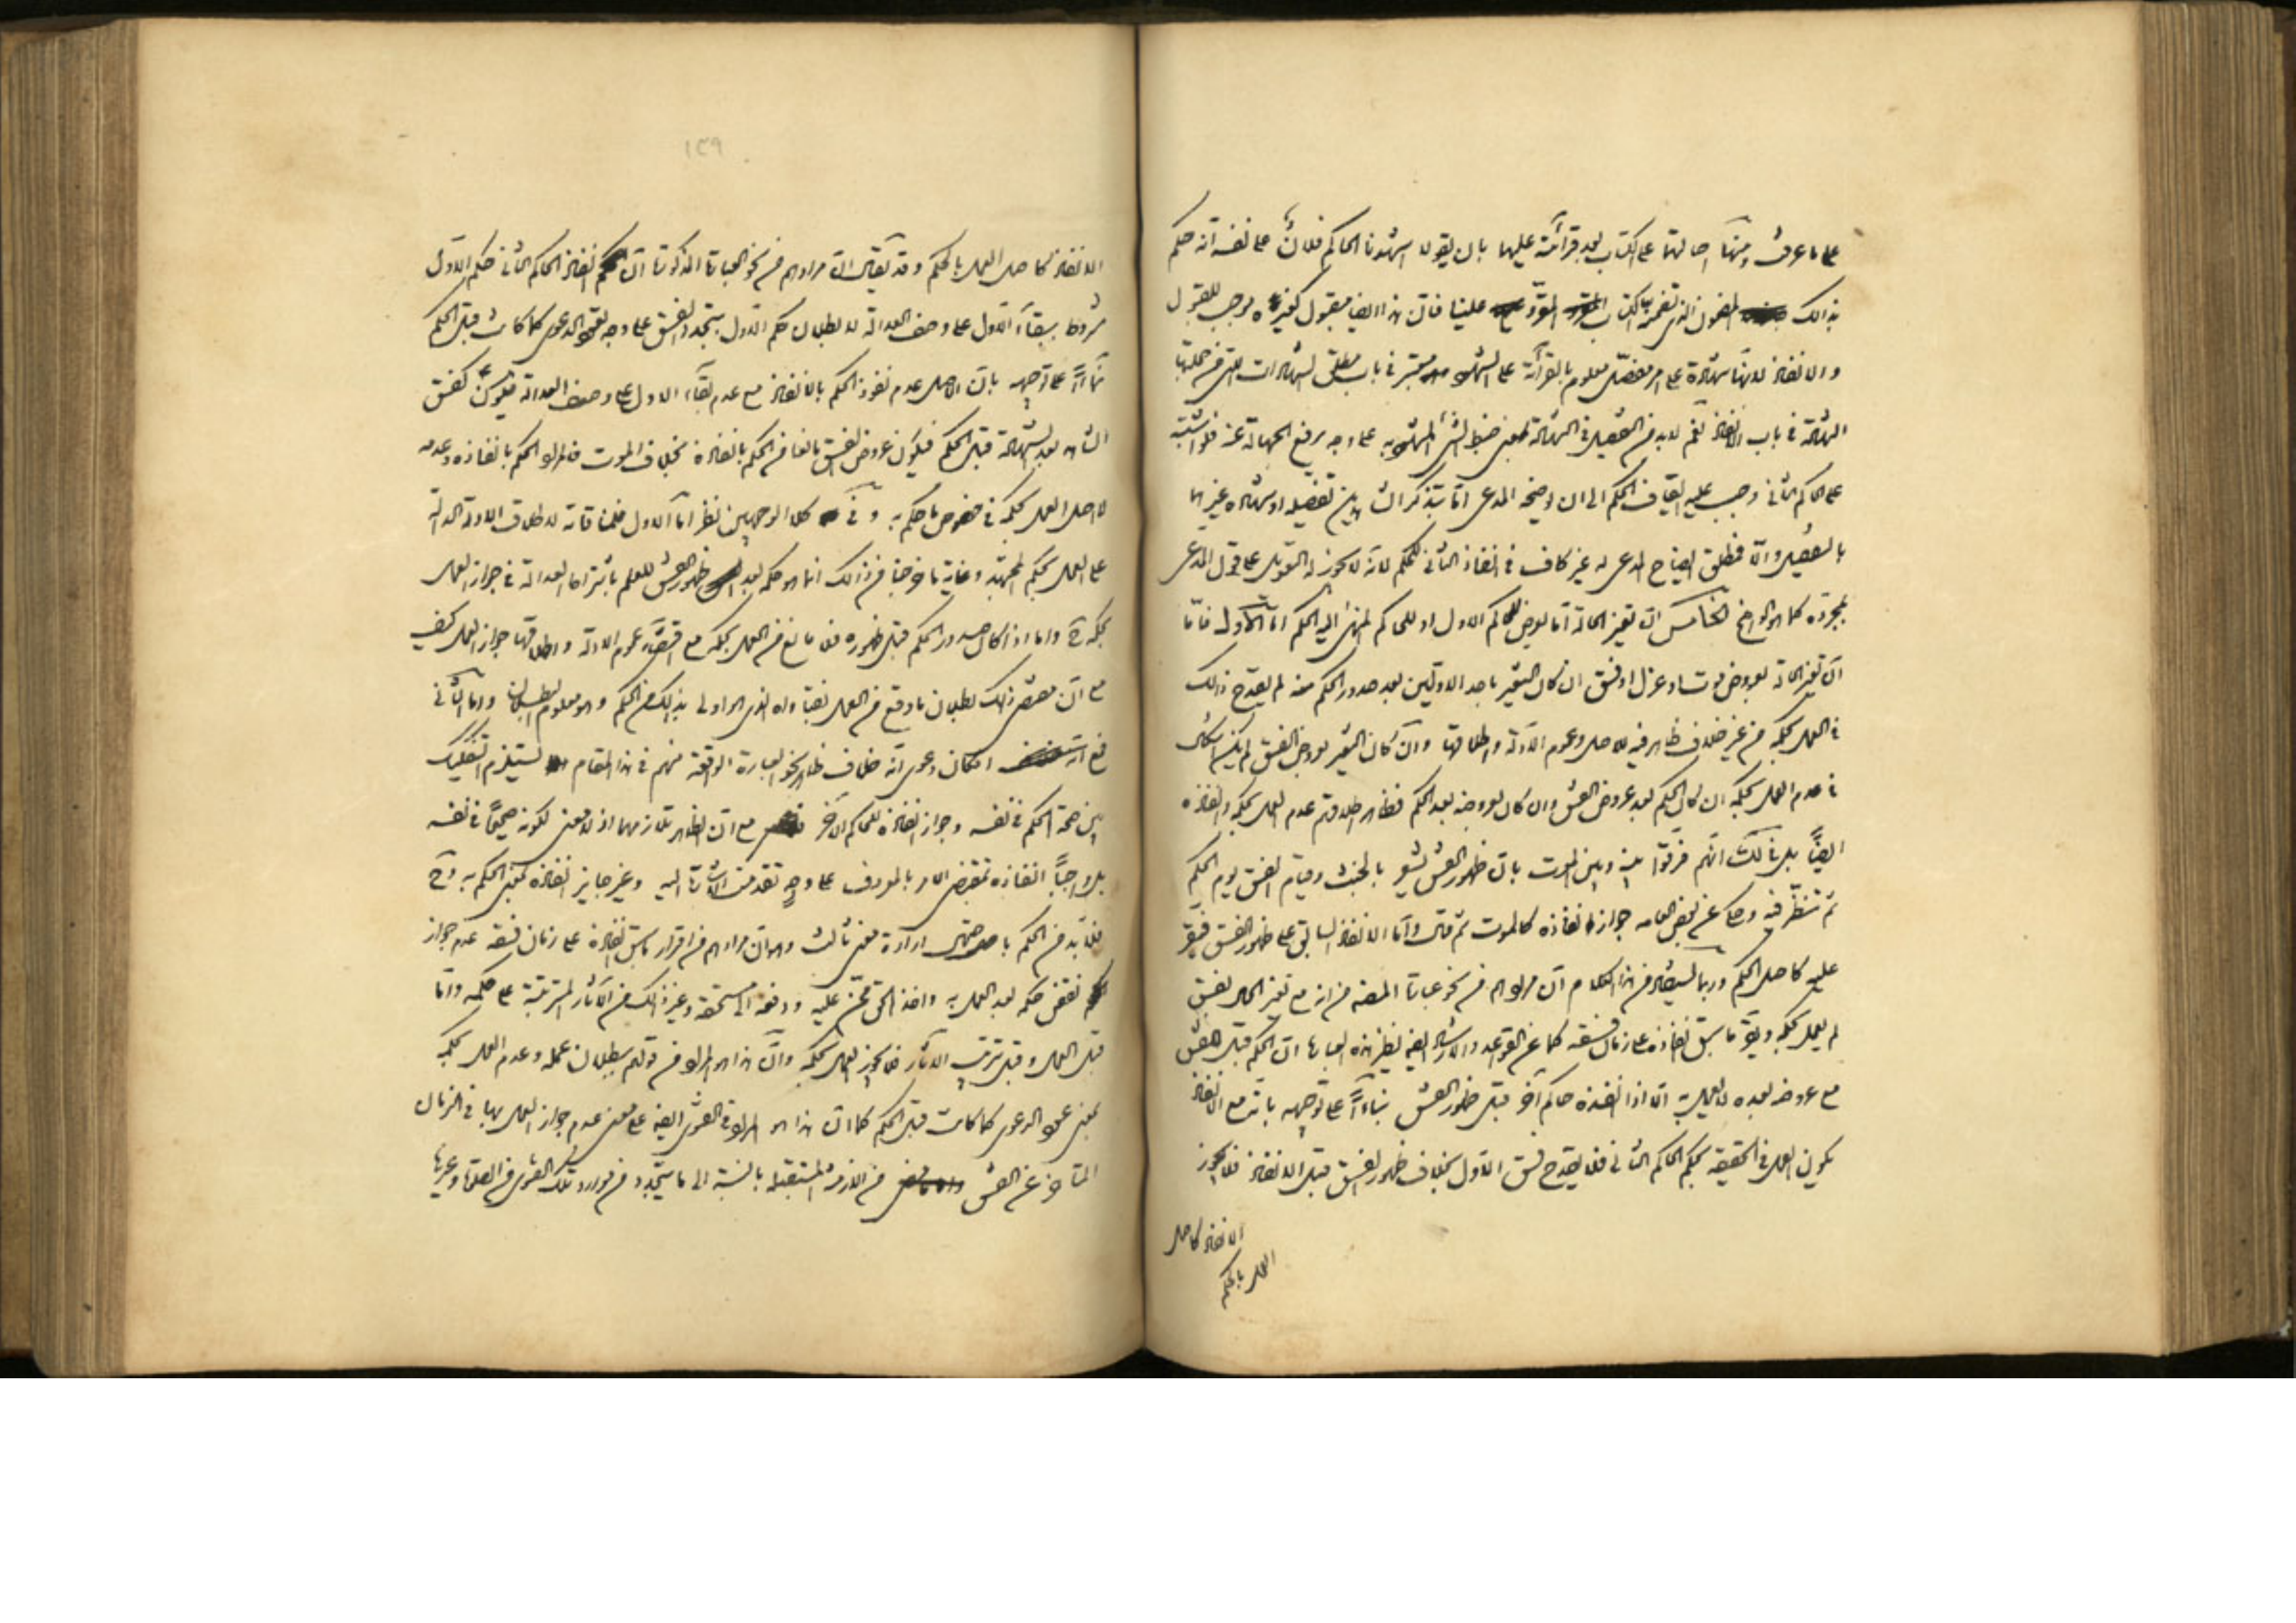 على ما عرفت ومنها احالتها على الكتاب بعد قرائته عليهما بان يقولا اشهدنا الحاكم فلان على نفسه انه حكم
بذالك المضمون الذى تضمنه الكتاب المقرو علينا فان هذا ايضا مقبول كغيره موجب للقبول
والانفاذ لانها شهادة على امر مفصل معلوم بالقرائة على الشهود معتبر فى باب مطلق الشهادات التى من جملتها
الشهادة فى باب الانفاذ نعم لابد من التفصيل فى الشهادة بمعنى ضبط الشئ المشهود به على وجه يرفع الجهالة عنه فلو اشتبه
على الحاكم الثانى وجب عليه ايقاف الحكم الى ان يوضحه المدعى اما بتذكر الشاهدين تفصيله او بشهادة غيرهما
بالتفصيل والا فمطلق ايضاح المدعى له غير كاف فى انفاذ الثانى للحكم لانه لا يجوز له التعويل على قول المدعى
بمجرده كما هو الواضح الخامس ان تغير الحالة اما يعرض للحاكم الاول او للحاكم المنهى اليه الحكم اما الاول فاما
ان تغير الحالة بعروض موت او عزل او فسق ان كان التغير باحد الاولين بعد صدور الحكم منه لم يقدح ذالك
فى العمل بحكمه من غير خلاف ظاهر فيه للاصل وعموم الادلة واطلاقها وان كان التغير بعروض الفسق لم يكن اشكال
فى عدم العمل بحكمه ان كان الحكم بعد عروض الفسق وان كان عروضه بعد الحكم فظاهر اطلاقهم عدم العمل بحكمه وانفاذه
ايضا بل فى لك انهم فرقوا بينه وبين الموت بان ظهور الفسق يشعر بالخبث وقيام الفسق يوم الحكم
ثم تنظر فيه وحكى عن بعض العامه جواز انفاذه كالموت ثم قال واما الانفاذ السابق على ظهور الفسق فيقر
عليه كاصل الحكم وربما يستظهر من هذا الكلام ان مرادهم من نحو عبارة المصنف من انه مع تغير الحال بفسق
لم يعمل بحكمه ويقر ما سبق انفاذه على زمان فسقه كما عن القواعد والارشاد ايضا نظير هذه العبارة ان الحكم قبل الفسق
مع عروضه بعده لا يعمل به الا اذا انفذه حاكم آخر قبل ظهور الفسق بناءً على توجيهه بانه مع الانفاذ
يكون العمل فى الحقيقه بحكم الحاكم الثانى فلا يقدح فسق الاول بخلاف ظهور الفسق قبل الانفاذ فلا يجوز
الانفاذ كاصل
العمل بالحكم
١٣٩
الانفاذ كاصل العمل بالحكم وقد يقال ان مرادهم من نحو العبارة المذكورة ان انفاذ الحاكم الثانى حكم الاول
مشروط ببقاء الاول على وصف العدالة لا بطلان حكم الاول بتجدد الفسق على وجه تعود الدعوى كما كانت قبل الحكم
بناءً على توجيهه بان الاصل عدم نفوذ الحكم بالانفاذ مع عدم بقاء الاول على وصف العدالة فيكون كفسق
الشاهد بعد الشهادة قبل الحكم فيكون عروض الفسق مانعا من الحكم بانفاذه بخلاف الموت فالمراد الحكم بانفاذه وعدمه
لا اصل العمل بحكمه فى خصوص ما حكم به وفى كلا الوجهين نظر اما الاول فلمنافاته لاطلاق الادلة الدالة
على العمل بحكم المجتهد وغاية ما خرجنا من ذالك انما هو حكمه بعد ظهور الفسق للعلم باشتراط العدالة فى جواز العمل
بحكمه ح واما اذا كان صدور الحكم قبل ظهوره فلا مانع من العمل بحكمه مع اقتضاء عموم الادلة واطلاقها جواز العمل كيف
مع ان مقتضى ذلك بطلان ما وقع من العمل بفتاواه الذى هو اولى بذالك من الحكم وهو معلوم البطلان واما الثانى
فمع امكان دعوى انه خلاف ظاهر نحو العبارة الواقعة منهم فى هذا المقام يستلزم التفكيك
بين صحة الحكم فى نفسه وجواز انفاذه للحاكم الآخر مع ان الظاهر تلازمهما اذ لا معنى لكونه صحيحا فى نفسه
بل واجبا انفاذه بمقتضى الامر بالمعروف على وجه تقدمت الاشارة اليه وغير جايز انفاذه بمعنى الحكم به وح
فلابد من الحكم ارادة معنى ثالث وهو ان مرادهم من اقرار ما سبق انفاذه على زمان فسقه عدم جواز
نقض حكمه بعد العمل به واخذ الحق ممن عليه ودفعه الى مستحقه وغير ذالك من الآثار المترتبة على حكمه واما
قبل العمل وقبل ترتب الآثار فلا يجوز العمل بحكمه وان هذا هو المراد من قولهم ببطلان عمله وعدم العمل بحكمه
بمعنى عود الدعوى كما كانت قبل الحكم كما ان هذا هو المراد فى الفتوى ايضا على معنى عدم جواز العمل بها فى الزمان
المتاخر عن الفسق من الازمنة المستقبلة بالنسبة الى ما يتجدد من موارد تلك الفتوى من الصلوة وغيرها